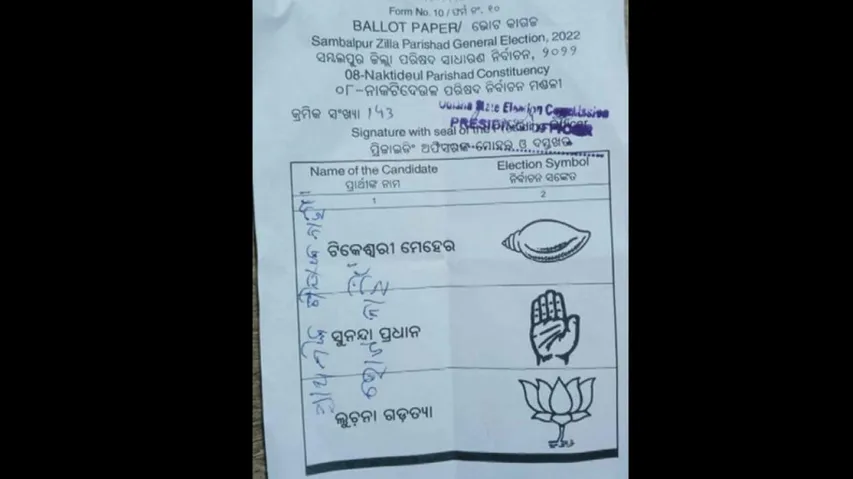 Form No. 10 / ଫର୍ମ ନଂ. ୧୦
BALLOT PAPER/ ଭୋଟ କାଗଜ
Sambalpur Zilla Parishad General Election, 2022
ସମ୍ବଲପୁର ଜିଲ୍ଲା ପରିଷଦ ସାଧାରଣ ନିର୍ବାଚନ, ୨୦୨୨
08-Naktideul Parishad Constituency
୦୮-ନାକଟିଦେଉଳ ପରିଷଦ ନିର୍ବାଚନ ମଣ୍ଡଳୀ
କ୍ରମିକ ସଂଖ୍ୟା 143
State Election Commission
PRESIDING OFFICER
Signature with seal of the Presiding Officer
ପ୍ରିଜାଇଡିଂ ଅଫିସରଙ୍କ ମୋହର ଓ ଦସ୍ତଖତ
Name of the Candidate
ପ୍ରାର୍ଥୀଙ୍କ ନାମ
Election Symbol
ନିର୍ବାଚନ ସଙ୍କେତ
1
2
ଟିକେଶ୍ୱରୀ ମେହେର
ସୁନନ୍ଦା ପ୍ରଧାନ
ଲୁଚନା ଗଡ଼ତ୍ୟା